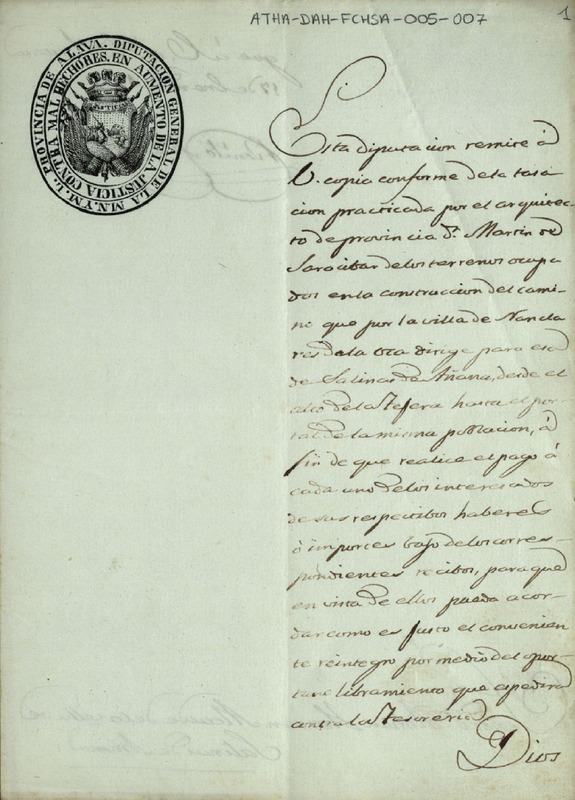 ATHA-DAH-FCHSA-005-007
1
PROVINCIA DE ALAVA. DIPUTACION GENERAL DE LA M.N. Y M.L.
MAL HECHORES. EN AUMENTO DE LA JUSTICIA CONTRA
Esta diputacion remite á
V. copia conforme de la tasa
cion practicada por el arquitec
to de provincia Dn. Martin de
Saracibar de los terrenos ocupa
dos en la construccion del cami-
no que por la villa de Nancla
res de la Oca dirige para esa
de Salinas de Añana, desde el
alto de la Tejera hasta el por-
tal de la misma poblacion, á
fin de que realice el pago á
cada uno de los interesados
de sus respectibos haberes
ó importes bajo de los corres-
pondientes recibos, para que
en vista de ellos pueda acor-
dar como es justo el convenien
te reintegro por medio del opor-
tuno libramiento que espedirá
contra la Tesoreria
Dios